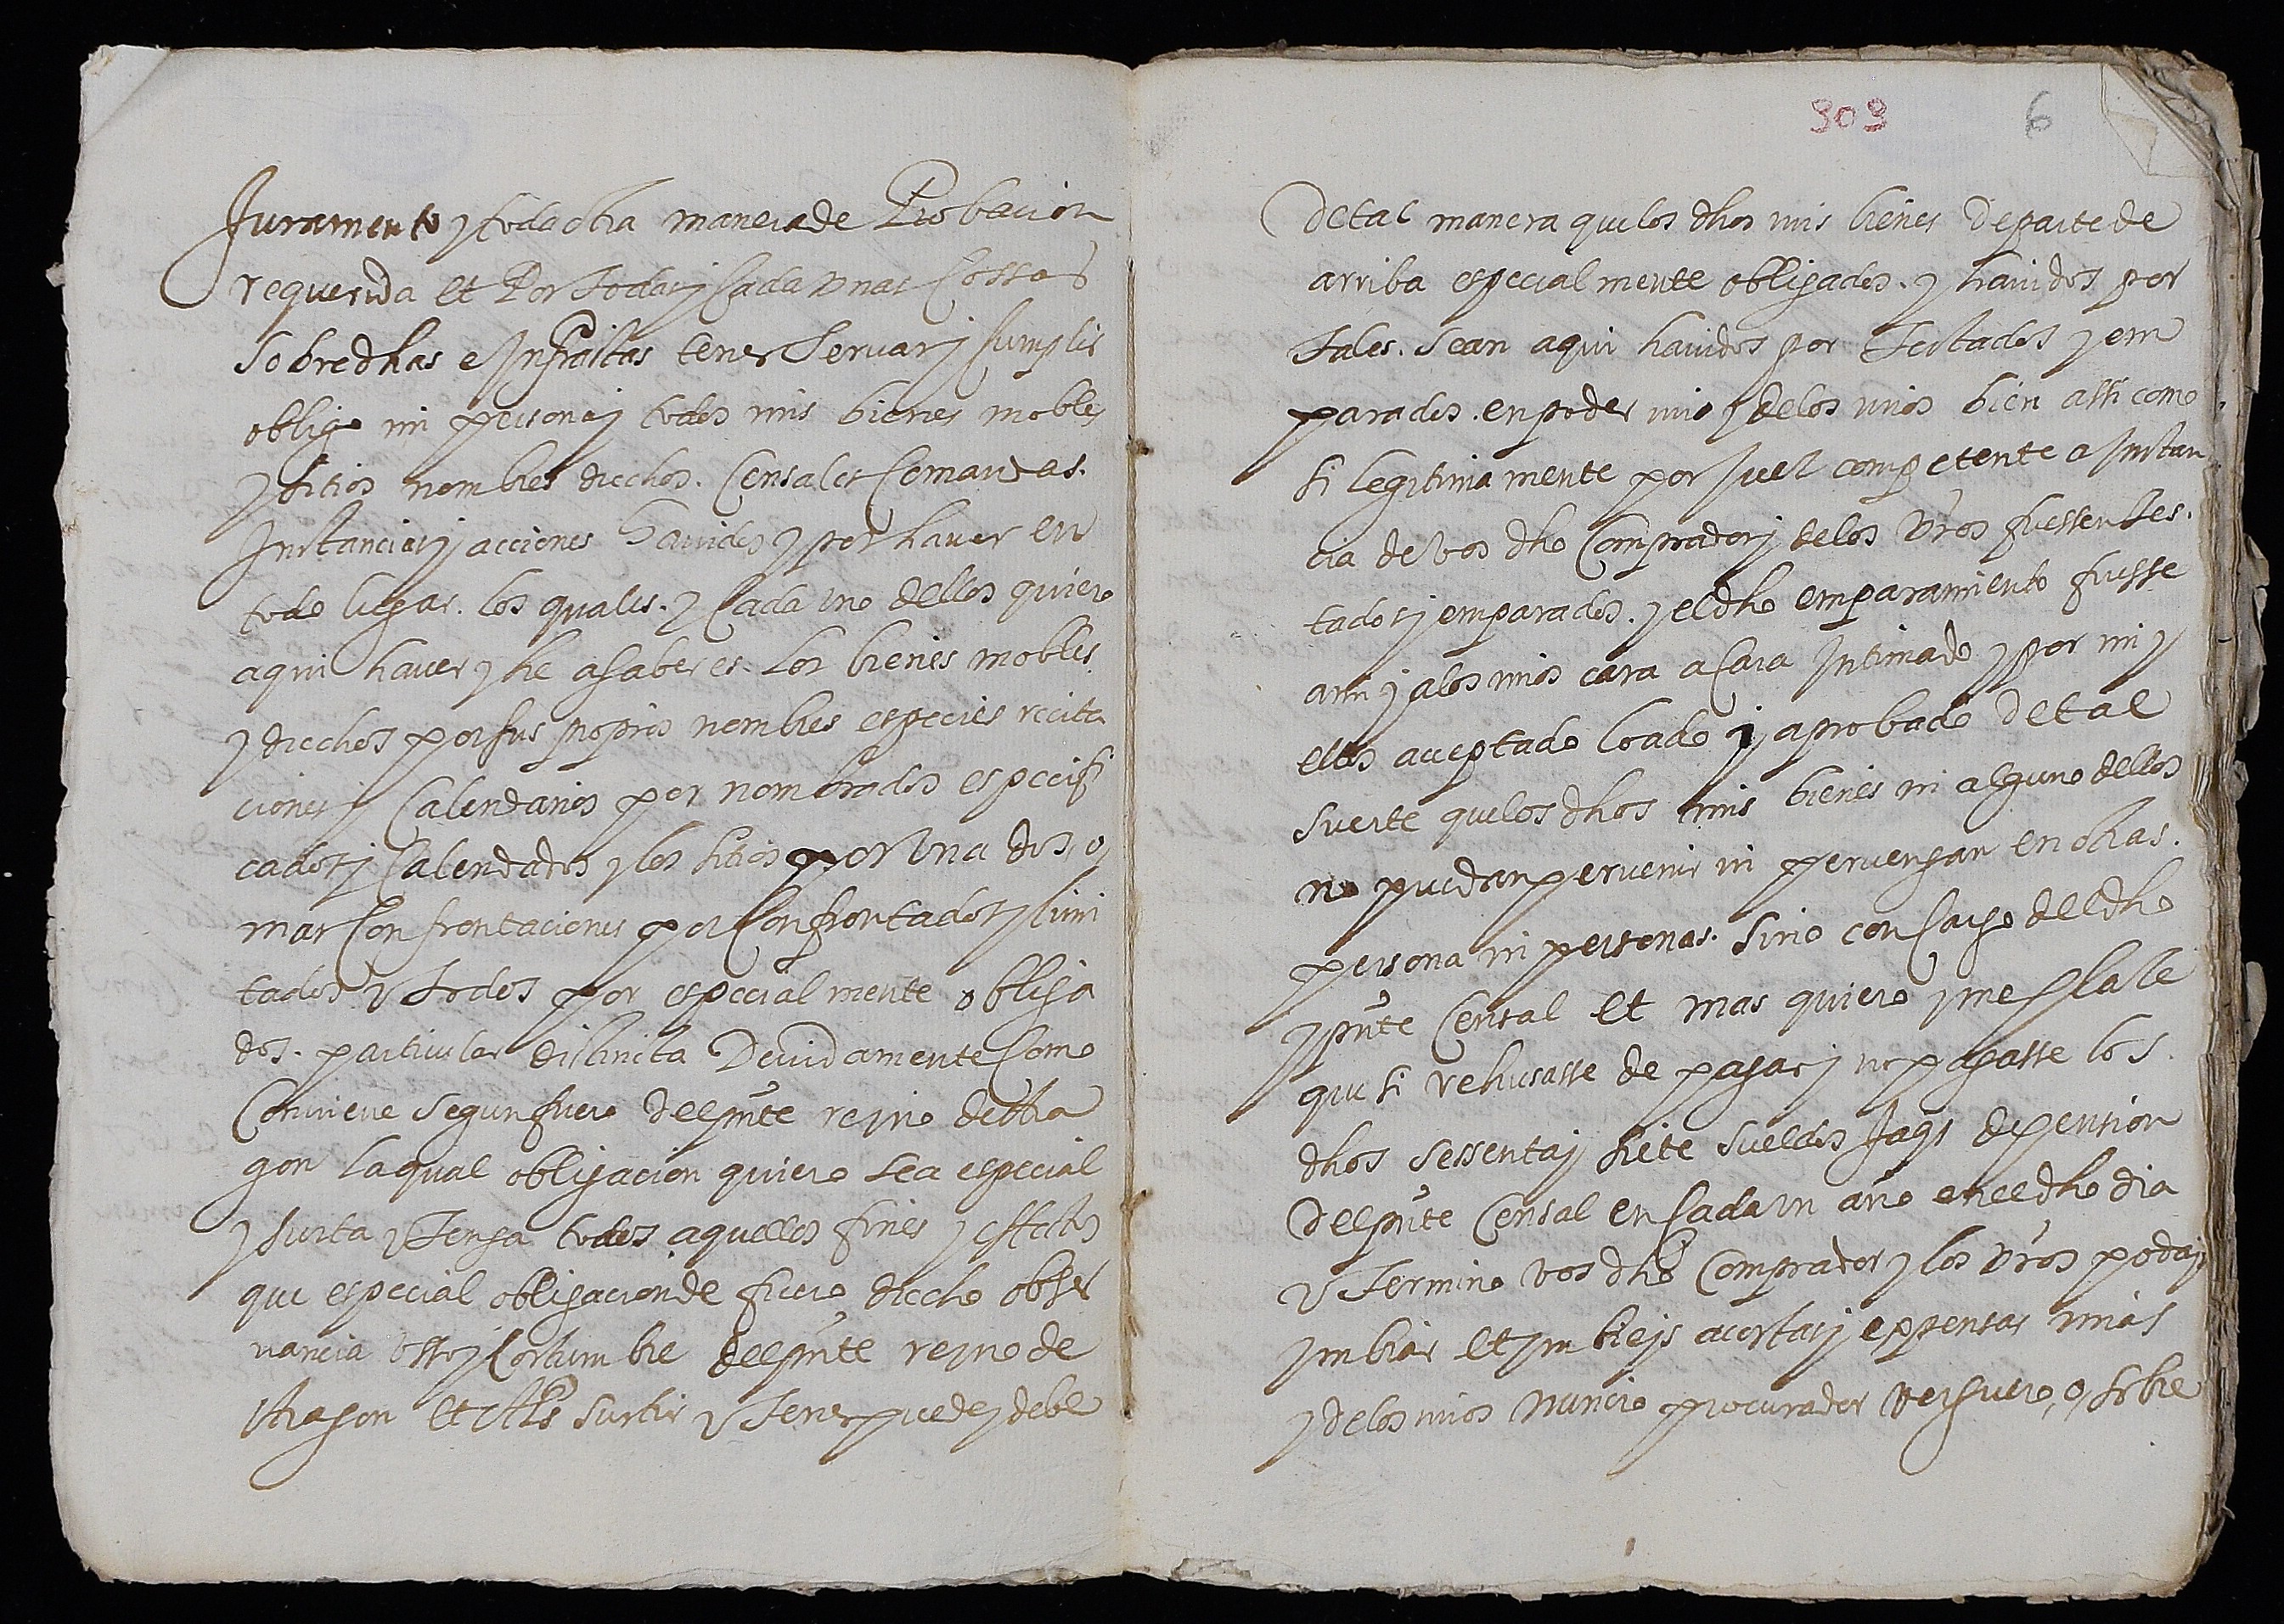 Juramento y toda otra manera de Probacion
requerida et Por Todas y Cada vnas Cossas
sobredhas e Infrasctas tener Seruar y Cumplir
obligo mi persona y todos mis bienes mobles
y sitios nombres drechos. Censales Comandas.
Instancias y acciones hauidos y por hauer en
todo lugar. los quales. y Cada vno dellos quiero
aqui hauer y he asaber es. Los bienes mobles
y drechos por sus propios nombres especies recita
ciones y Calendarios por nombrados especifi
cados y Calendados y los sitios por vna dos, o,
mas Confrontaciones por Confrontados y limi
tados y Todos por especialmente obliga
dos. particular distincta Deuidamente Como
Conuiene segun fuero del pnte reyno de Ara
gon la qual obligacion quiero sea especial
y surta y Tenga todos aquellos fines y effectos
que especial obligacion de fuero drecho obser
uancia vsso y Costumbre del pnte reyno de
Aragon et Als surtir y Tener puede y debe
303 6
De tal manera que los dhos mis bienes de parte de
arriba especialmente obligados. y hauidos por
Tales. Sean aqui hauidos por Sertados y em
parados. en poder mio y delos mios bien assi como
si legitimamente por Juez competente a Instan
cia de vos dho Comprador y delos vros fuessen Ser
tados y emparados. y el dho emparamiento fuesse
ami y alos mios cara a Cara Intimado y por mi y
ellos acceptado loado y aprobado de tal
suerte que los dhos mis bienes ni alguno dellos
no puedan peruenir ni peruengan en otras.
persona ni personas. Sino con Cargo del dho
y pnte Censal et mas quiero y me place
que si rehusasse de pagar y no pagasse los.
dhos sessenta y siete sueldos Jaqs de pension
del pnte Censal en Cada vn año en el dho dia
y Termino vos dho Comprador y los vros podays
ymbiar et ymbieys acostas y expensas mias
y delos mios Nuncio procurador verguero, o, sobre